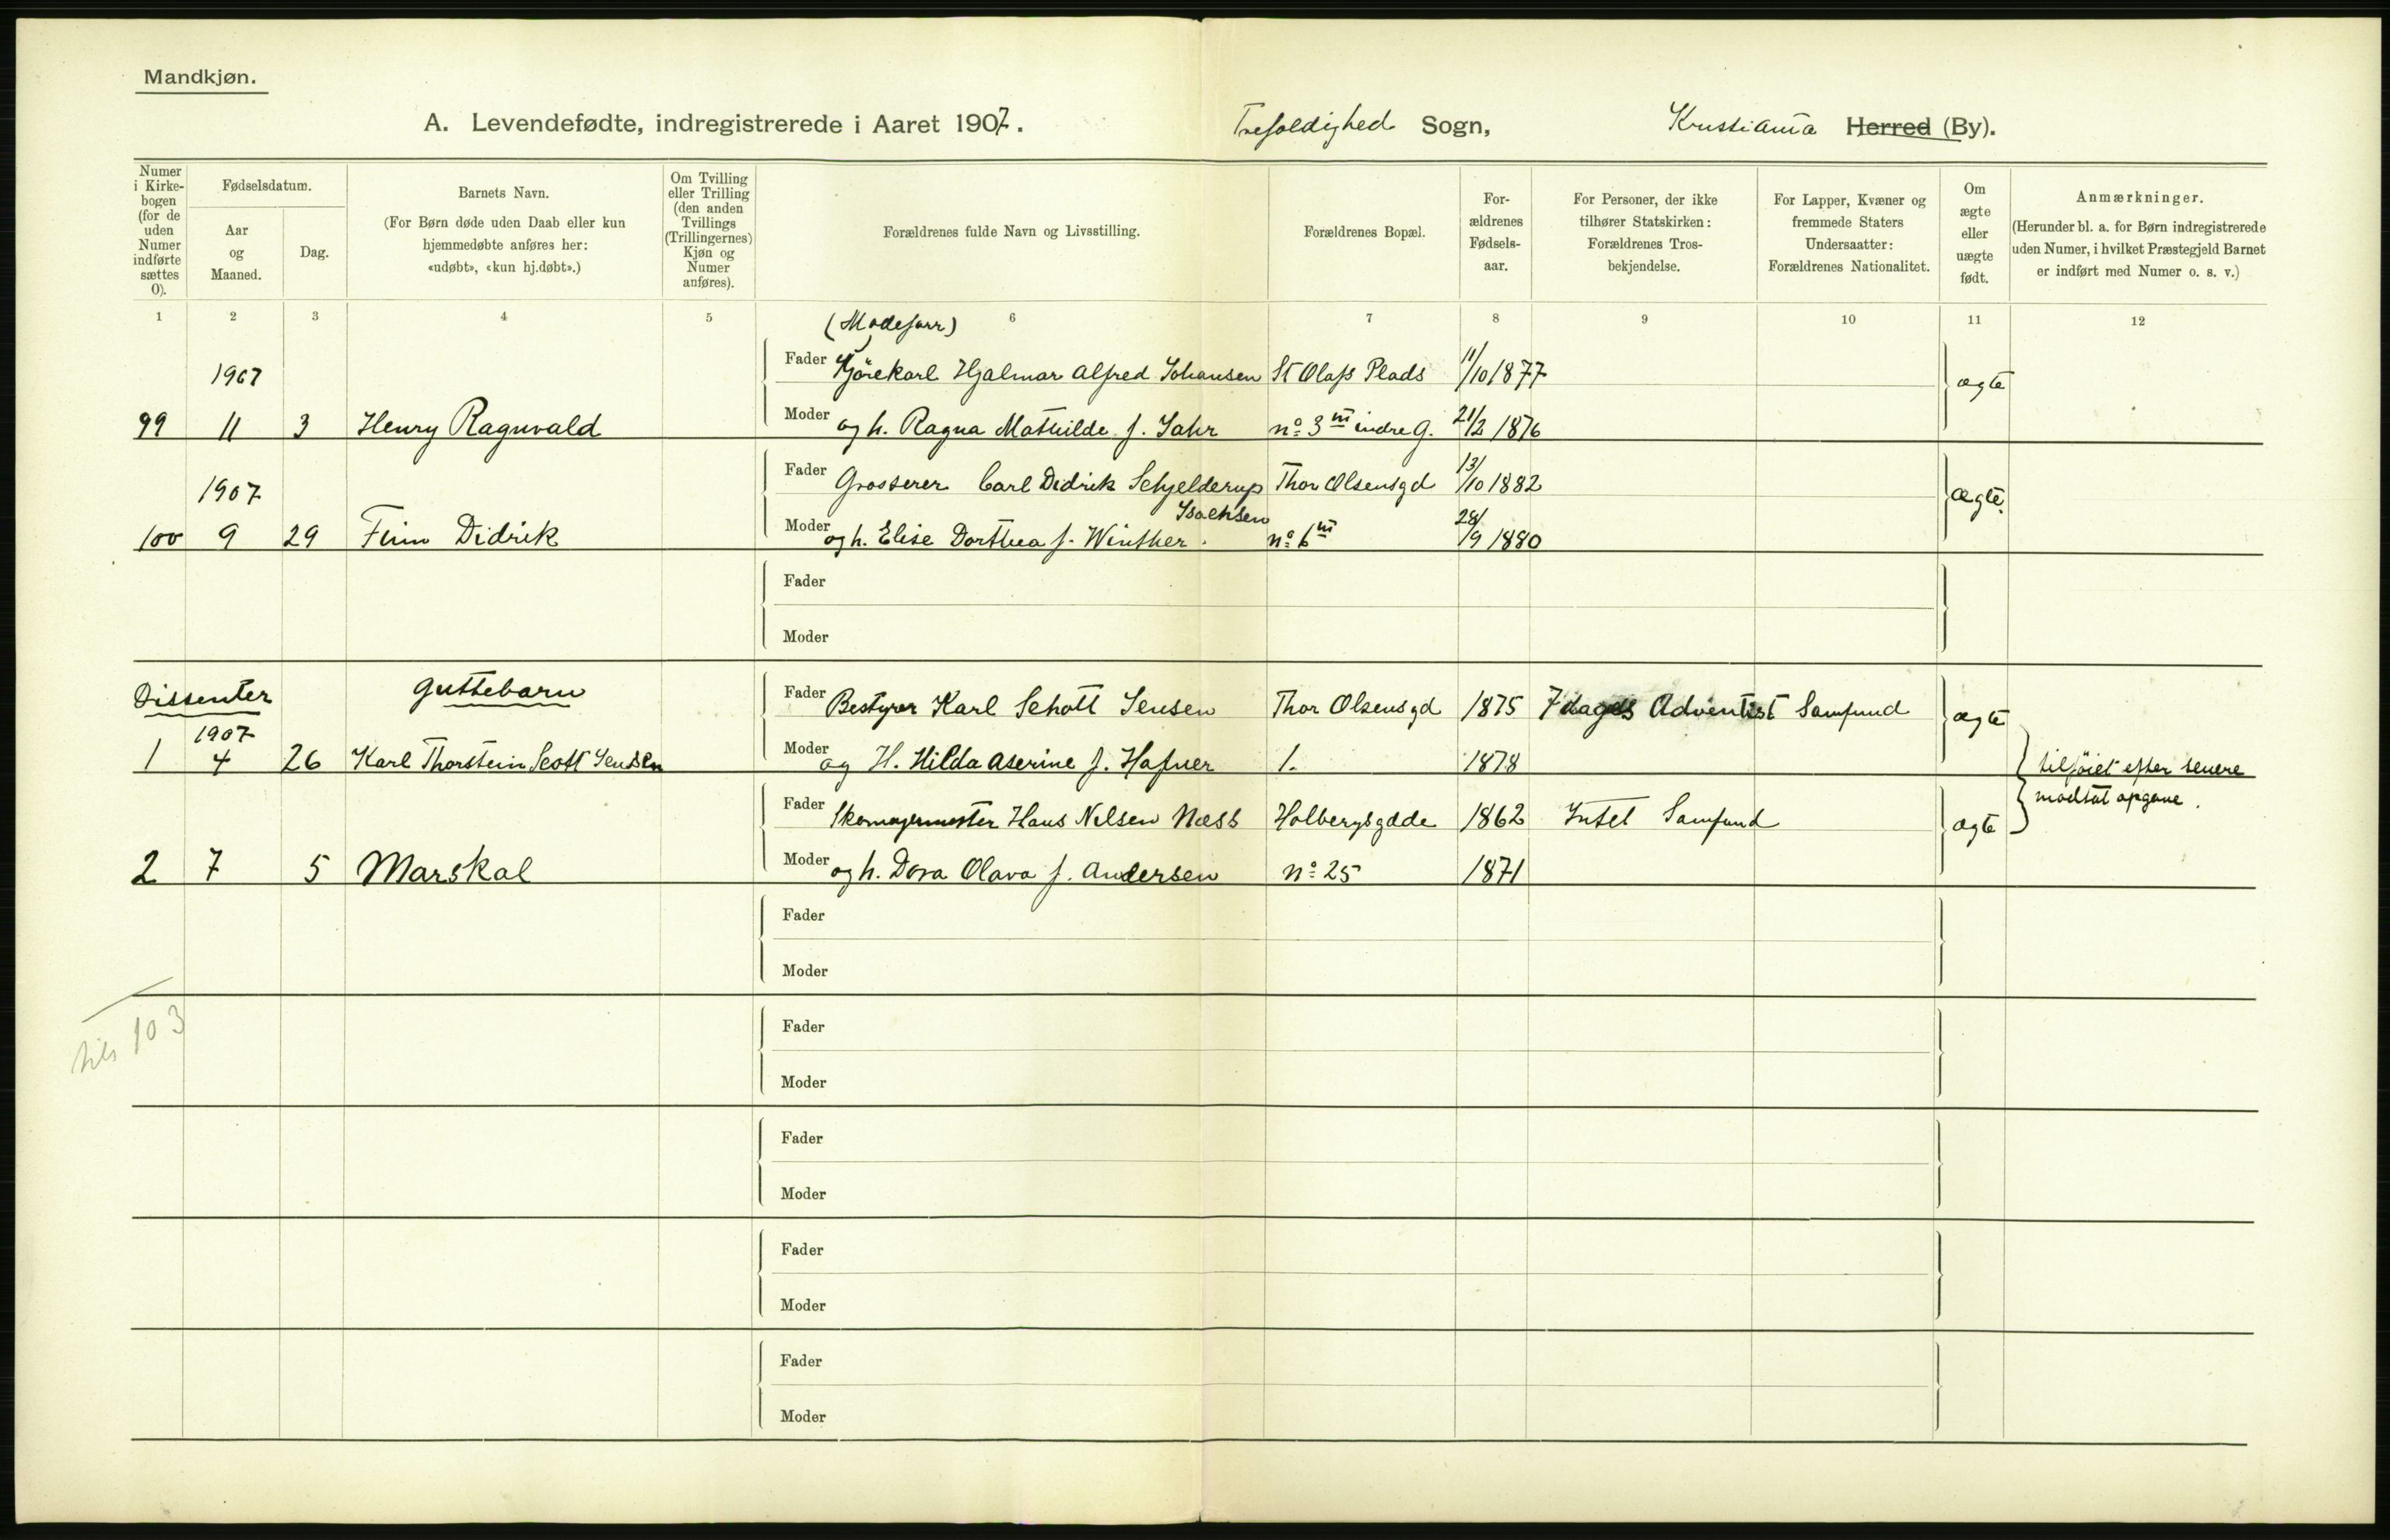 Mandkjøn.
A. Levendefødte, indregistrerede i Aaret 1907.
Trefoldighed Sogn, Kristiania Herred (By).
Numer i Kirke-bogen (for de uden Numer indførte sættes 0).
Fødselsdatum.
Aar og Maaned.
Dag.
Barnets Navn.
(For Børn døde uden Daab eller kun hjemmedøbte anføres her: «udøbt», «kun hj.døbt».)
Om Tvilling eller Trilling (den anden Tvillings (Trillingernes) Kjøn og Numer anføres).
Forældrenes fulde Navn og Livsstilling.
Forældrenes Bopæl.
For-ældrenes Fødsels-aar.
For Personer, der ikke tilhører Statskirken: Forældrenes Tros-bekjendelse.
For Lapper, Kvæner og fremmede Staters Undersaatter: Forældrenes Nationalitet.
Om ægte eller uægte født.
Anmærkninger.
(Herunder bl. a. for Børn indregistrerede uden Numer, i hvilket Præstegjeld Barnet er indført med Numer o. s. v.)
1 2 3 4 5 6 7 8 9 10 11 12
1907
Fader Kjørekarl Hjalmar Alfred Johansen St Olafs Plads 11/10 1877 ægte
99 11 3 Henry Ragnvald Moder og h. Ragna Mathilde f. Jahr no 3 III indre G. 21/2 1876
1907
Fader Grosserer Carl Didrik Schjelderup Isachsen Thor Olsensgd 13/10 1882 ægte
100 9 29 Finn Didrik Moder og h. Elise Dorthea f. Winther no 6 III 28/9 1880
Fader
Moder
Dissenter Guttebarn Fader Bestyrer Karl Schott Jensen Thor Olsensgd 1875 7 dages Adventist Samfund ægte
1907
1 4 26 Karl Thorstein Scott Jensen Moder og H. Hilda Aserine f. Hafner 1. 1878
tilføiet efter senere
modtat opgave.
Fader Skomagermester Hans Nelsen Næss Holbergsgade 1862 Intet Samfund ægte
2 7 5 Marskal Moder og h. Dora Olava f. Andersen no 25 1871
Fader
Moder
tils 103
Fader
Moder
Fader
Moder
Fader
Moder
Fader
Moder